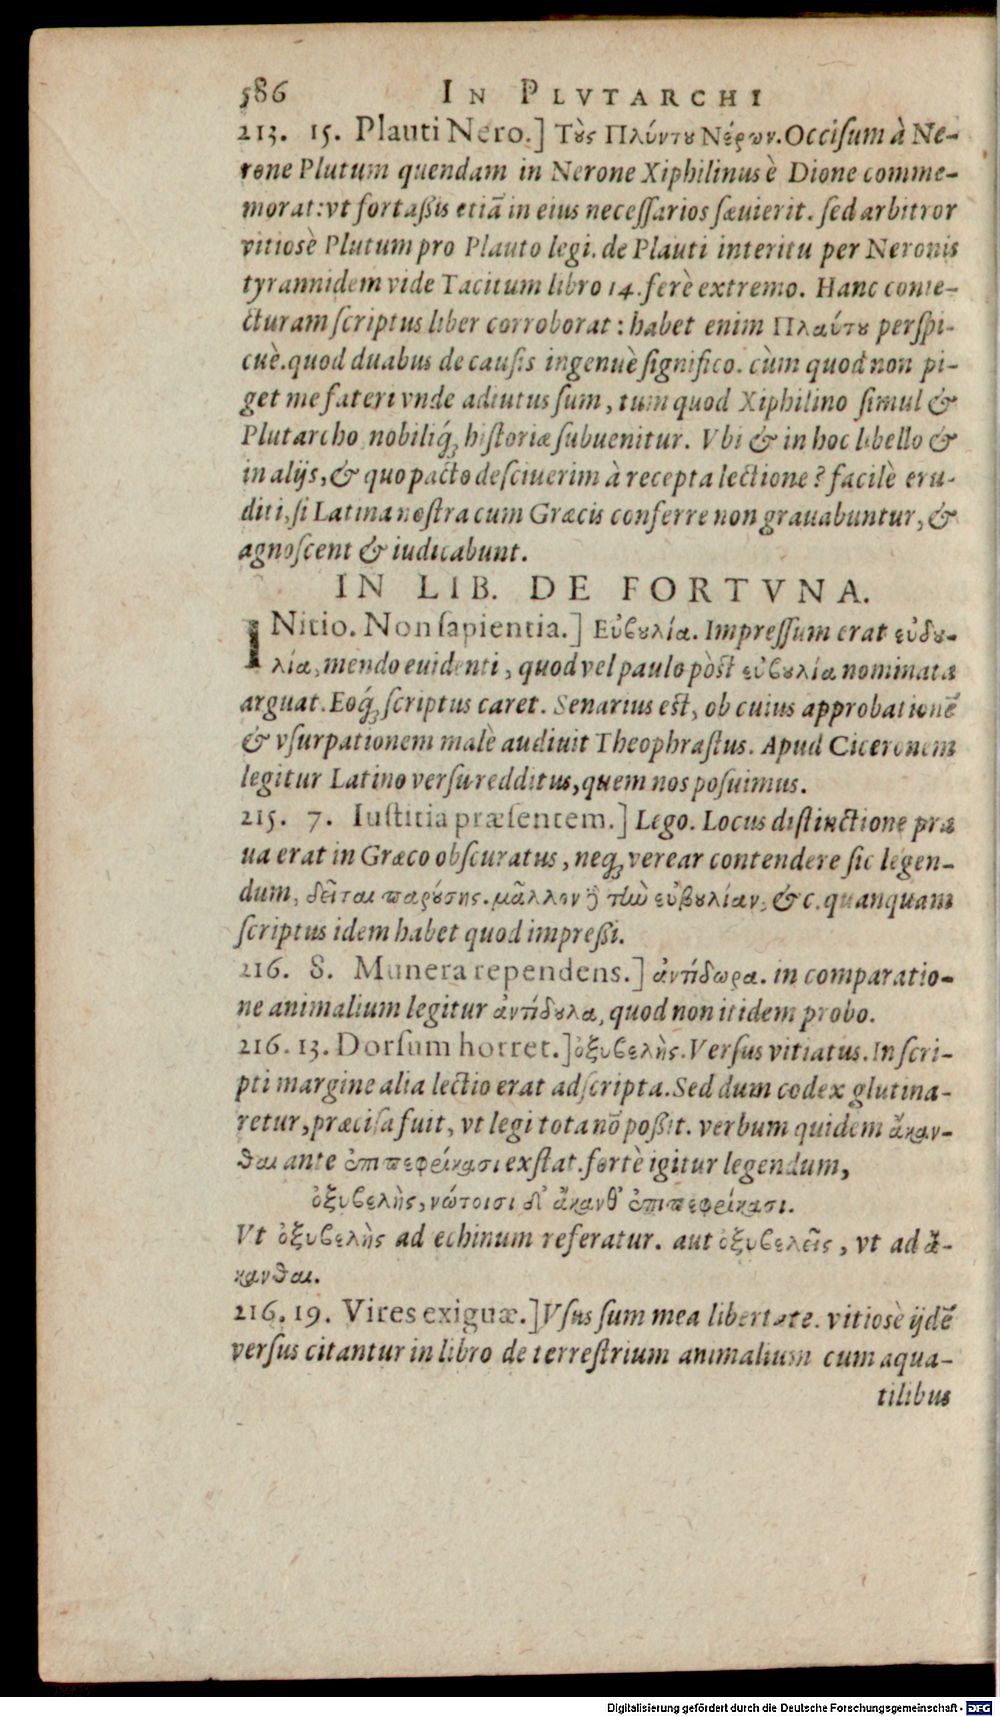 586 IN PLVTARCHI
213. 15. Plauti Nero.] Τοὺς Πλύντου Νέρων. Occisum à Ne-
rone Plutum quendam in Nerone Xiphilinus è Dione comme-
morat: vt fortaßis etiā in eius necessarios sæuierit. sed arbitror
vitiosè Plutum pro Plauto legi. de Plauti interitu per Neronis
tyrannidem vide Tacitum libro 14. ferè extremo. Hanc conie-
cturam scriptus liber corroborat: habet enim Πλαύτου perspi-
cuè. quod duabus de causis ingenuè significo. cùm quod non pi-
get me fateri vnde adiutus sum, tum quod Xiphilino simul &
Plutarcho nobiliq́; historiæ subuenitur. Vbi & in hoc libello &
in alijs, & quo pacto desciuerim à recepta lectione? facilè eru-
diti, si Latina nostra cum Græcis conferre non grauabuntur, &
agnoscent & iudicabunt.
IN LIB. DE FORTVNA.
INitio. Non sapientia.] Εὐβουλία. Impressum erat εὐδου-
λία, mendo euidenti, quod vel paulo pòst εὐβουλία nominata
arguat. Eoq́; scriptus caret. Senarius est, ob cuius approbationē
& vsurpationem malè audiuit Theophrastus. Apud Ciceronem
legitur Latino versu redditus, quem nos posuimus.
215. 7. Iustitia præsentem.] Lego. Locus distinctione pra
ua erat in Græco obscuratus, neq; verear contendere sic legen-
dum, δεῖται παρούσης. μᾶλλον ἢ τὴν εὐβουλίαν, &c. quanquam
scriptus idem habet quod impreßi.
216. 8. Munera rependens.] ἀντίδωρα. in comparatio-
ne animalium legitur ἀντίδουλα, quod non itidem probo.
216. 13. Dorsum horret.] ὀξυβελὴς. Versus vitiatus. In scri-
pti margine alia lectio erat adscripta. Sed dum codex glutina-
retur, præcisa fuit, vt legi tota nō poßit. verbum quidem ἄκαν-
θαι ante ἐπιπεφρίκασι exstat. fortè igitur legendum,
ὀξυβελὴς, νώτοισι δ' ἄκανθ' ἐπιπεφρίκασι.
Vt ὀξυβελὴς ad echinum referatur. aut ὀξυβελεῖς, vt ad ἄ-
κανθαι.
216. 19. Vires exiguæ.] Vsus sum mea libertate. vitiosè ijdē
versus citantur in libro de terrestrium animalium cum aqua-
tilibus
Digitalisierung gefördert durch die Deutsche Forschungsgemeinschaft - DFG